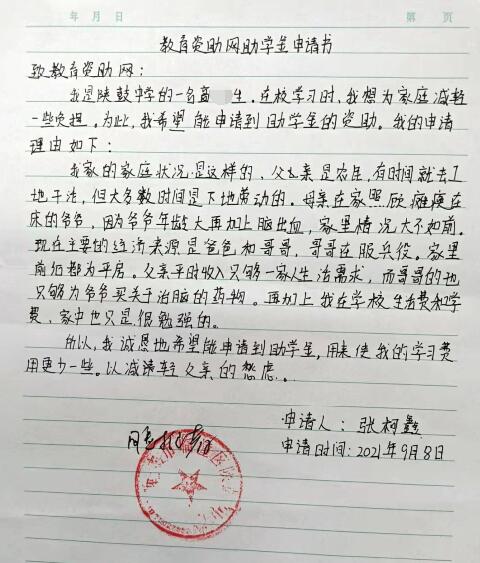 年 月 日 第 页
教育资助网助学金申请书
致教育资助网：
我是陕鼓中学的一名高 生。在校学习时，我想为家庭减轻
一些负担。为此，我希望能申请到助学金的资助。我的申请
理由如下：
我家的家庭状况是这样的、父亲是农民，有时间就去工
地干活，但大多数时间是下地劳动的。母亲在家照顾瘫痪在
床的爷爷，因为爷爷年龄大再加上脑出血，家里情况大不如前。
现在主要的经济来源是爸爸和哥哥，哥哥在服兵役。家里
前后都为平房。父亲平时收入只够一家人生活需求，而哥哥的也
只够为爷爷买关于治脑的药物。再加上我在学校生活费和学
费、家中也只是很勉强的。
所以，我诚恳地希望能申请到助学金，用来使我的学习费
用更少一些。以减轻父亲的愁虑。
申请人：张柯鑫
申请时间：2021年9月8日
同意